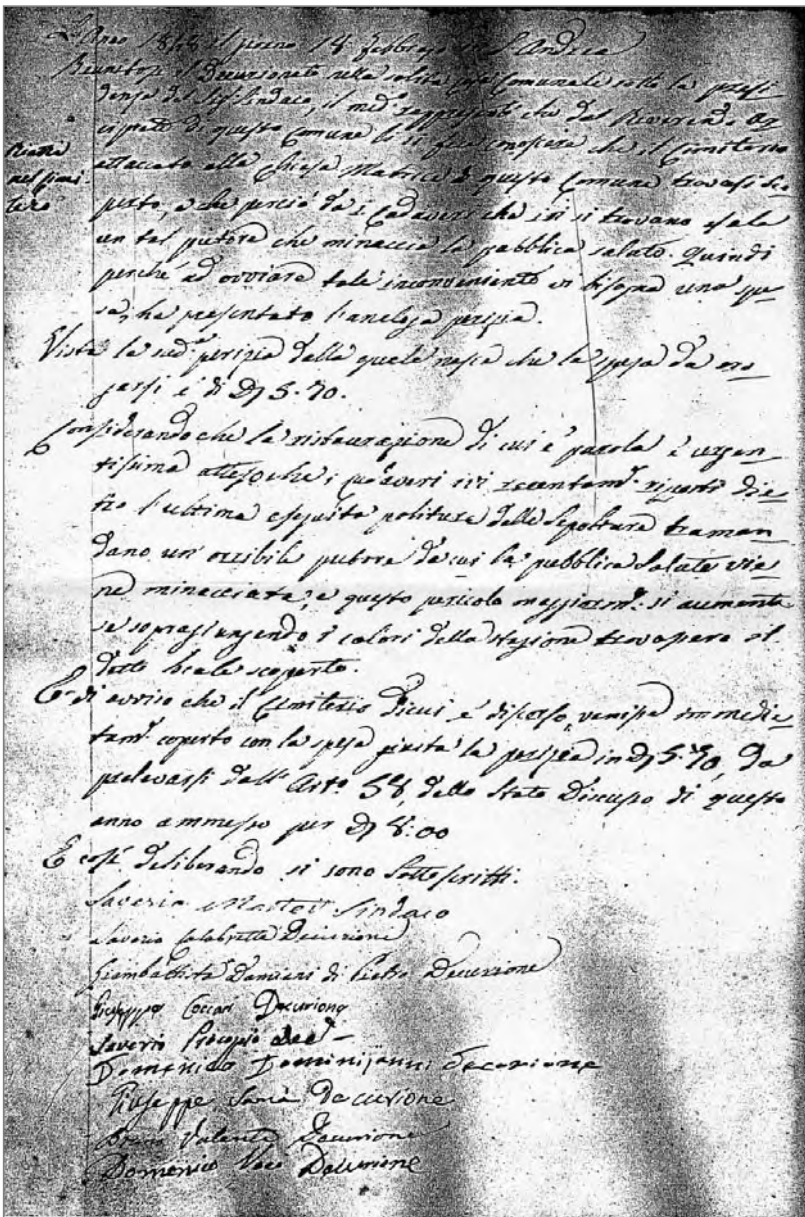 L'Anno 1848 il giorno 18 Febbrajo in S. Andrea
Riunitosi il Decurionato nella solita Casa Comunale sotto la presi
denza del Sig. Sindaco, il med.° rappresentò che dal Reverendo Ar
ciprete di questo Comune li si fece conoscere che il Cimiterio
attaccato alla Chiesa Matrice di questo Comune trovasi sco
perto, e che perciò da i Cadaveri che ivi si trovano esala
un tal putore che minaccia la pubblica salute. Quindi
perché ad ovviare tale inconveniente vi bisogna una spe
sa, ha presentato l'analoga perizia.
nel cimi-
tero
Vista la sud.ª perizia dalla quale nasce che la spesa da ero
garsi è di D. 5.70.
Considerando che la ristaurazione di cui è parola è urgen
tissima attesoché i cadaveri ivi recentam.e riposti die
tro l'ultima eseguita politura delle Sepolture traman
dano un orribile putore da cui la pubblica Salute vie
ne minacciata, e questo pericolo maggiorm.e si aumenta
se sopragiungendo i calori della stagione trovasse il
detto locale scoperto.
È di avviso che il Cimiterio di cui è discorso, venisse immedia
tam.e coperto con la spesa giusta la perizia in D. 5.70, da
prelevarsi dall'Art.° 58, dello Stato Discusso di questo
anno ammesso per D. 8:00
E così deliberando si sono Sottoscritti.
Saverio Sindaco
Saverio Calabretta Decurione
Giambattista Damiani di Pietro Decurione
Giuseppe Coccari Decurione
Saverio Procopio Dec.e
Domenico Dominijanni Decorione
Giuseppe Samà Decurione
Bruno Valenti Decurione
Domenico Voci Decurione